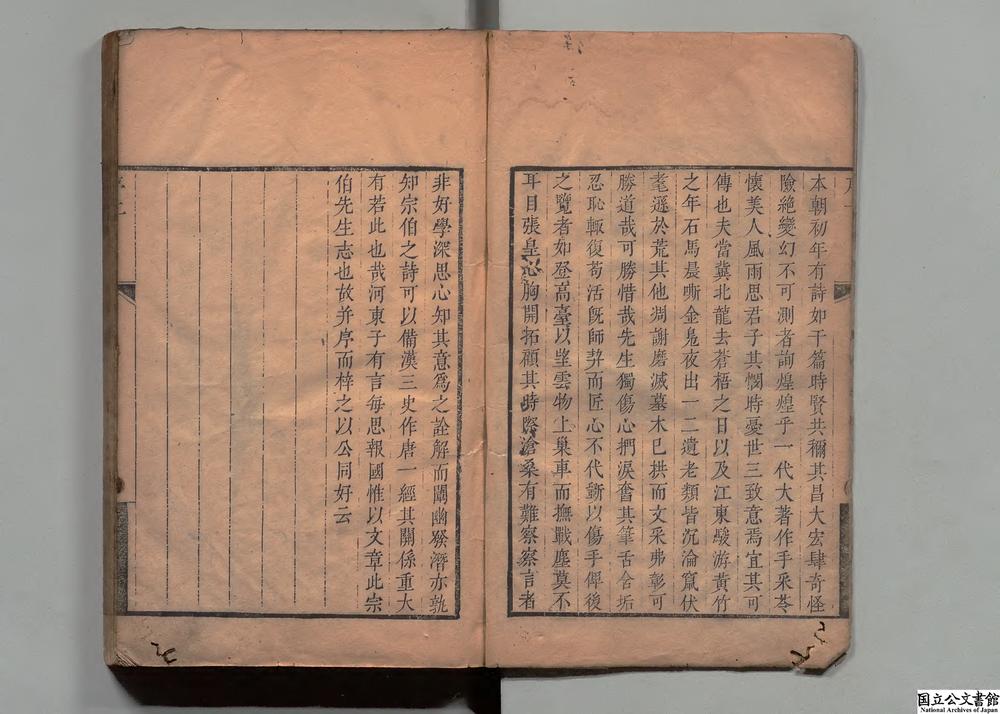 本朝初年有詩如干篇時賢共稱其昌大宏肆奇怪
險絶變幻不可測者詢煌煌乎一代大著作手采苓
懷美人風雨思君子其憫時憂世三致意焉宜其可
傳也夫當冀北龍去蒼梧之日以及江東駿游黃竹
之年石馬晨嘶金鳬夜出一二遺老類皆沉淪竄伏
耄遜於荒其他凋謝磨滅墓木已拱而文采弗彰可
勝道哉可勝惜哉先生獨傷心捫淚奮其筆舌含垢
忍恥輙復苟活旣師㢡而匠心不代斵以傷手俾後
之覽者如登高臺以望雲物上巢車而撫戰塵莫不
耳目張皇心胸開拓顧其時際滄桑有難察察言者
非好學深思心知其意爲之詮解而闡幽發潛亦孰
知宗伯之詩可以備漢三史作唐一經其關係重大
有若此也哉河東子有言每思報國惟以文章此宗
伯先生志也故并序而梓之以公同好云
国立公文書館
National Archives of Japan